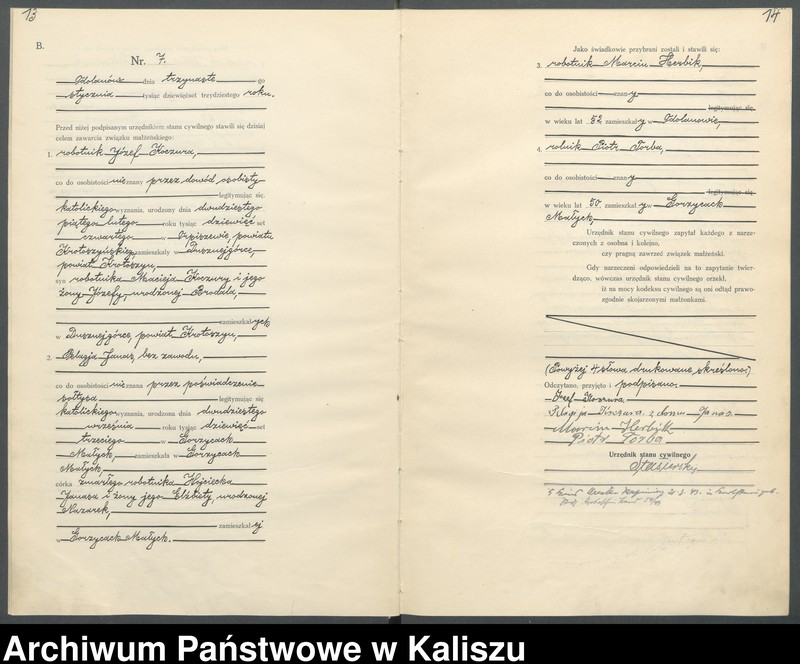 13
B.
Nr. 7.
Odolanów dnia trzynaste go
stycznia tysiąc dziewięćset trzydziestego roku.
Przed niżej podpisanym urzędnikiem stanu cywilnego stawili się dzisiaj
celem zawarcia związku małżeńskiego:
1. robotnik Józef Koczura,
co do osobistości nieznany przez dowód osobisty
legitymując się.
katolickiego wyznania, urodzony dnia dwudziestego
piątego lutego roku tysiąc dziewięć set
czwartego w powiatu
Krotoszyńskiego zamieszkały w Dusznejgórce,
powiat Krotoszyn,
syn robotnika Macieja Koczury i jego
żony Józefy, urodzonej Brodala,
zamieszkałych
w Dusznejgórce, powiat Krotoszyn,
2. Pelagja Janas, bez zawodu,
co do osobistości nieznana przez poświadczenie
sołtysa legitymując się
katolickiego wyznania, urodzona dnia dwudziestego
września roku tysiąc dziewięć set
trzeciego w Gorzycach
Małych, zamieszkała w Gorzycach
Małych,
córka zmarłego robotnika Wojciecha
Janasa i żony jego Elżbiety, urodzonej
Nazarek,
zamieszkałej
w Gorzycach Małych.
14
Jako świadkowie przybrani zostali i stawili się:
3. robotnik Marcin Herbik,
co do osobistości znany
legitymując się.
w wieku lat 52 zamieszkały w Odolanowie,
4. rolnik Piotr Torba,
co do osobistości znany
legitymując się.
w wieku lat 50 zamieszkały w Gorzycach
Małych,
Urzędnik stanu cywilnego zapytał każdego z narze-
czonych z osobna i kolejno,
czy pragną zawrzeć związek małżeński.
Gdy narzeczeni odpowiedzieli na to zapytanie twier-
dząco, wówczas urzędnik stanu cywilnego orzekł,
iż na mocy kodeksu cywilnego są oni odtąd prawo-
zgodnie skojarzonymi małżonkami.
(Powyżej 4 słowa drukowane skreślono:)
Odczytano, przyjęto i podpisano:
Józef Koczura
Pelagja Koczura z domu Janas
Marcin Herbik
Piotr Torba
Urzędnik stanu cywilnego
Archiwum Państwowe w Kaliszu